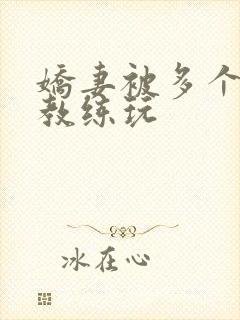 娇妻被多个
教练玩
冰在心